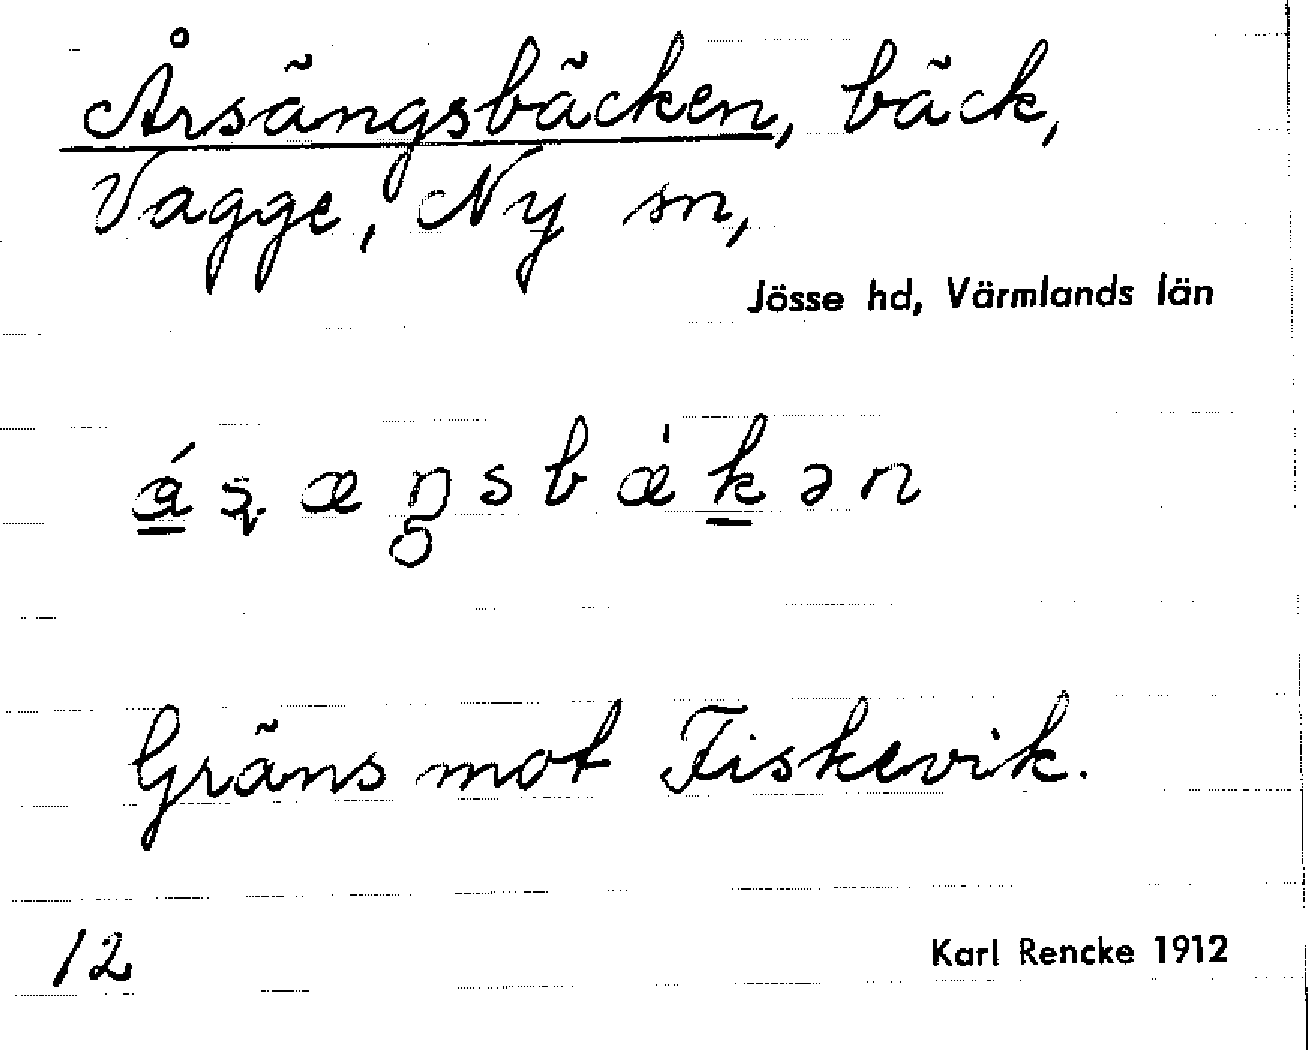 Årsängsbäcken, bäck,
Vagge, Ny sn,
Jösse hd, Värmlands län
ᶏ́ʂæŋsbæ̀kən
Gräns mot Fiskevik.
12
Karl Rencke 1912